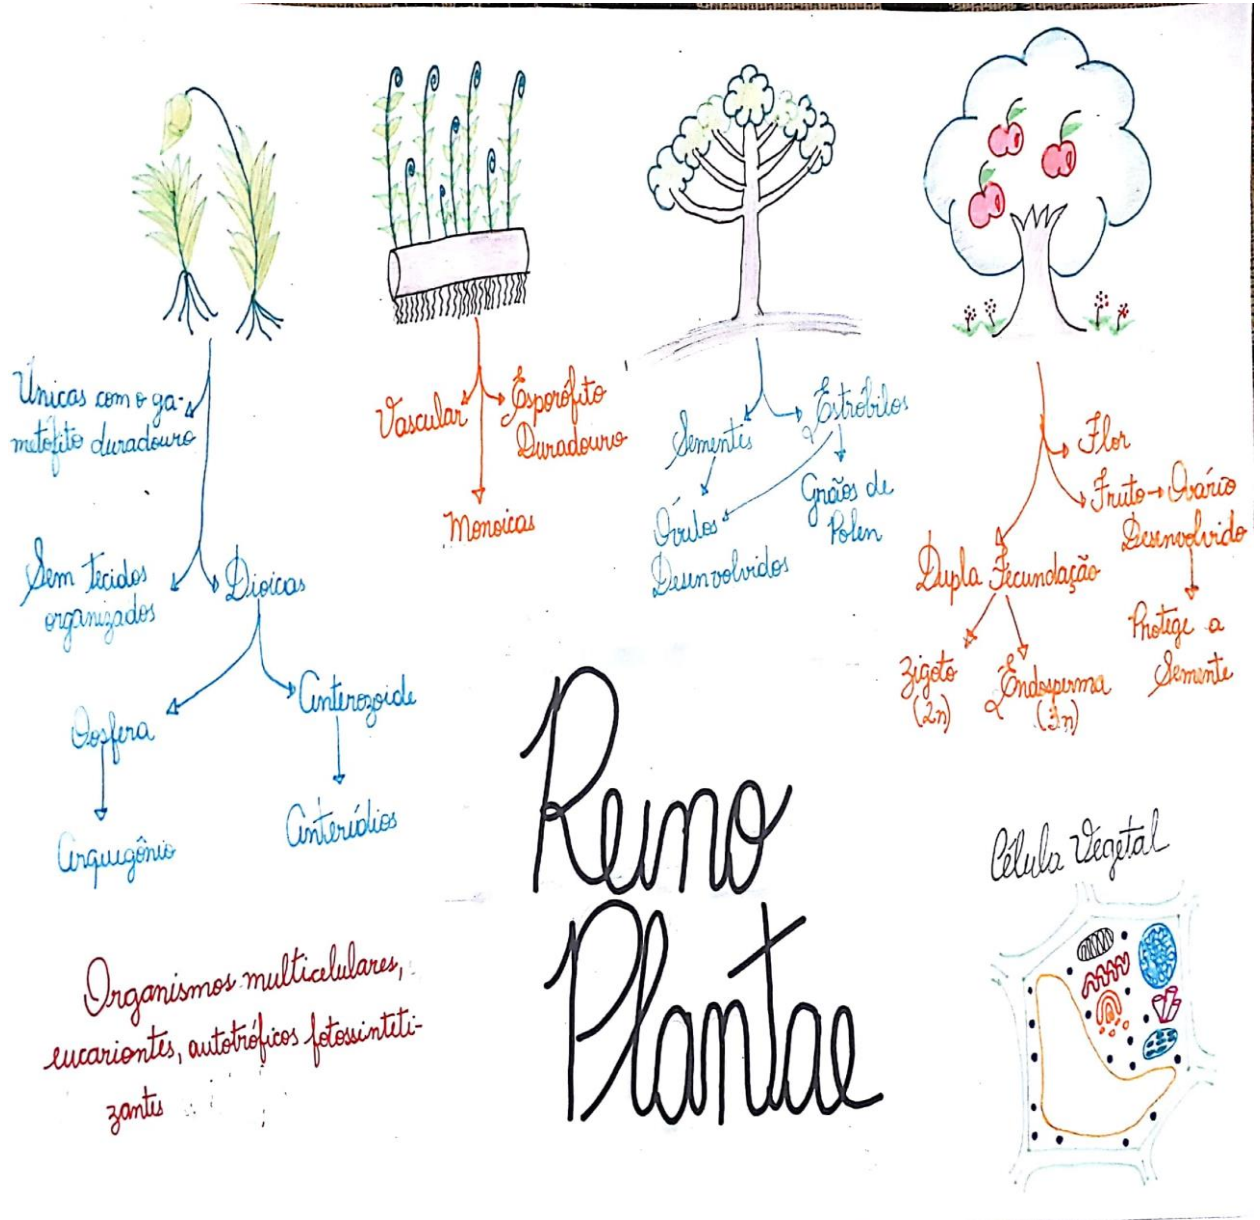 Únicas com o ga-
metófito duradouro
Sem tecidos
organizados
Dioicas
Oosfera
Anterozoide
Arquegônio
Anterídios
Vascular
Esporófito
Duradouro
Monoicas
Sementes
Estróbilos
Óvulos
Desenvolvidos
Grãos de
Polen
Flor
Fruto → Ovário
Desenvolvido
Protege a
Semente
Dupla Fecundação
Zigoto
(2n)
Endosperma
(3n)
Reino
Plantae
Célula Vegetal
Organismos multicelulares,
eucariontes, autotróficos fotossinteti-
zantes